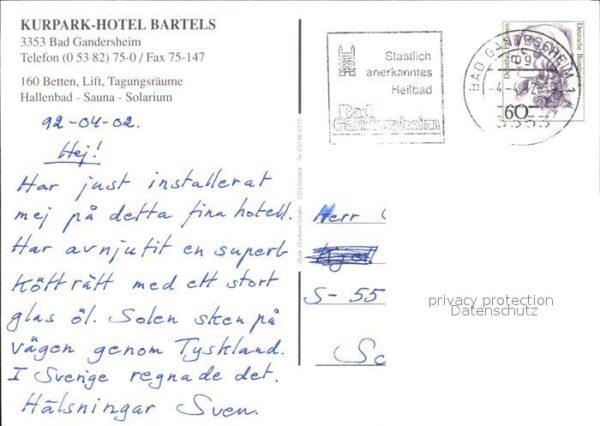 KURPARK-HOTEL BARTELS
3353 Bad Gandersheim
Telefon (0 53 82) 75-0 / Fax 75-147
160 Betten, Lift, Tagungsräume
Hallenbad - Sauna - Solarium
Staatlich
anerkanntes
Heilbad
Bad
Gandersheim
BAD GANDERSHEIM 1
3353
Deutsche Bundespost
60
92-04-02.
Hej!
Har just installerat
mej på detta fina hotell.
Har avnjutit en superb
Kötträtt med ett stort
glas öl. Solen sken på
vägen genom Tyskland.
I Sverige regnade det.
Hälsningar Sven.
Herr
S- 55
privacy protection
Datenschutz